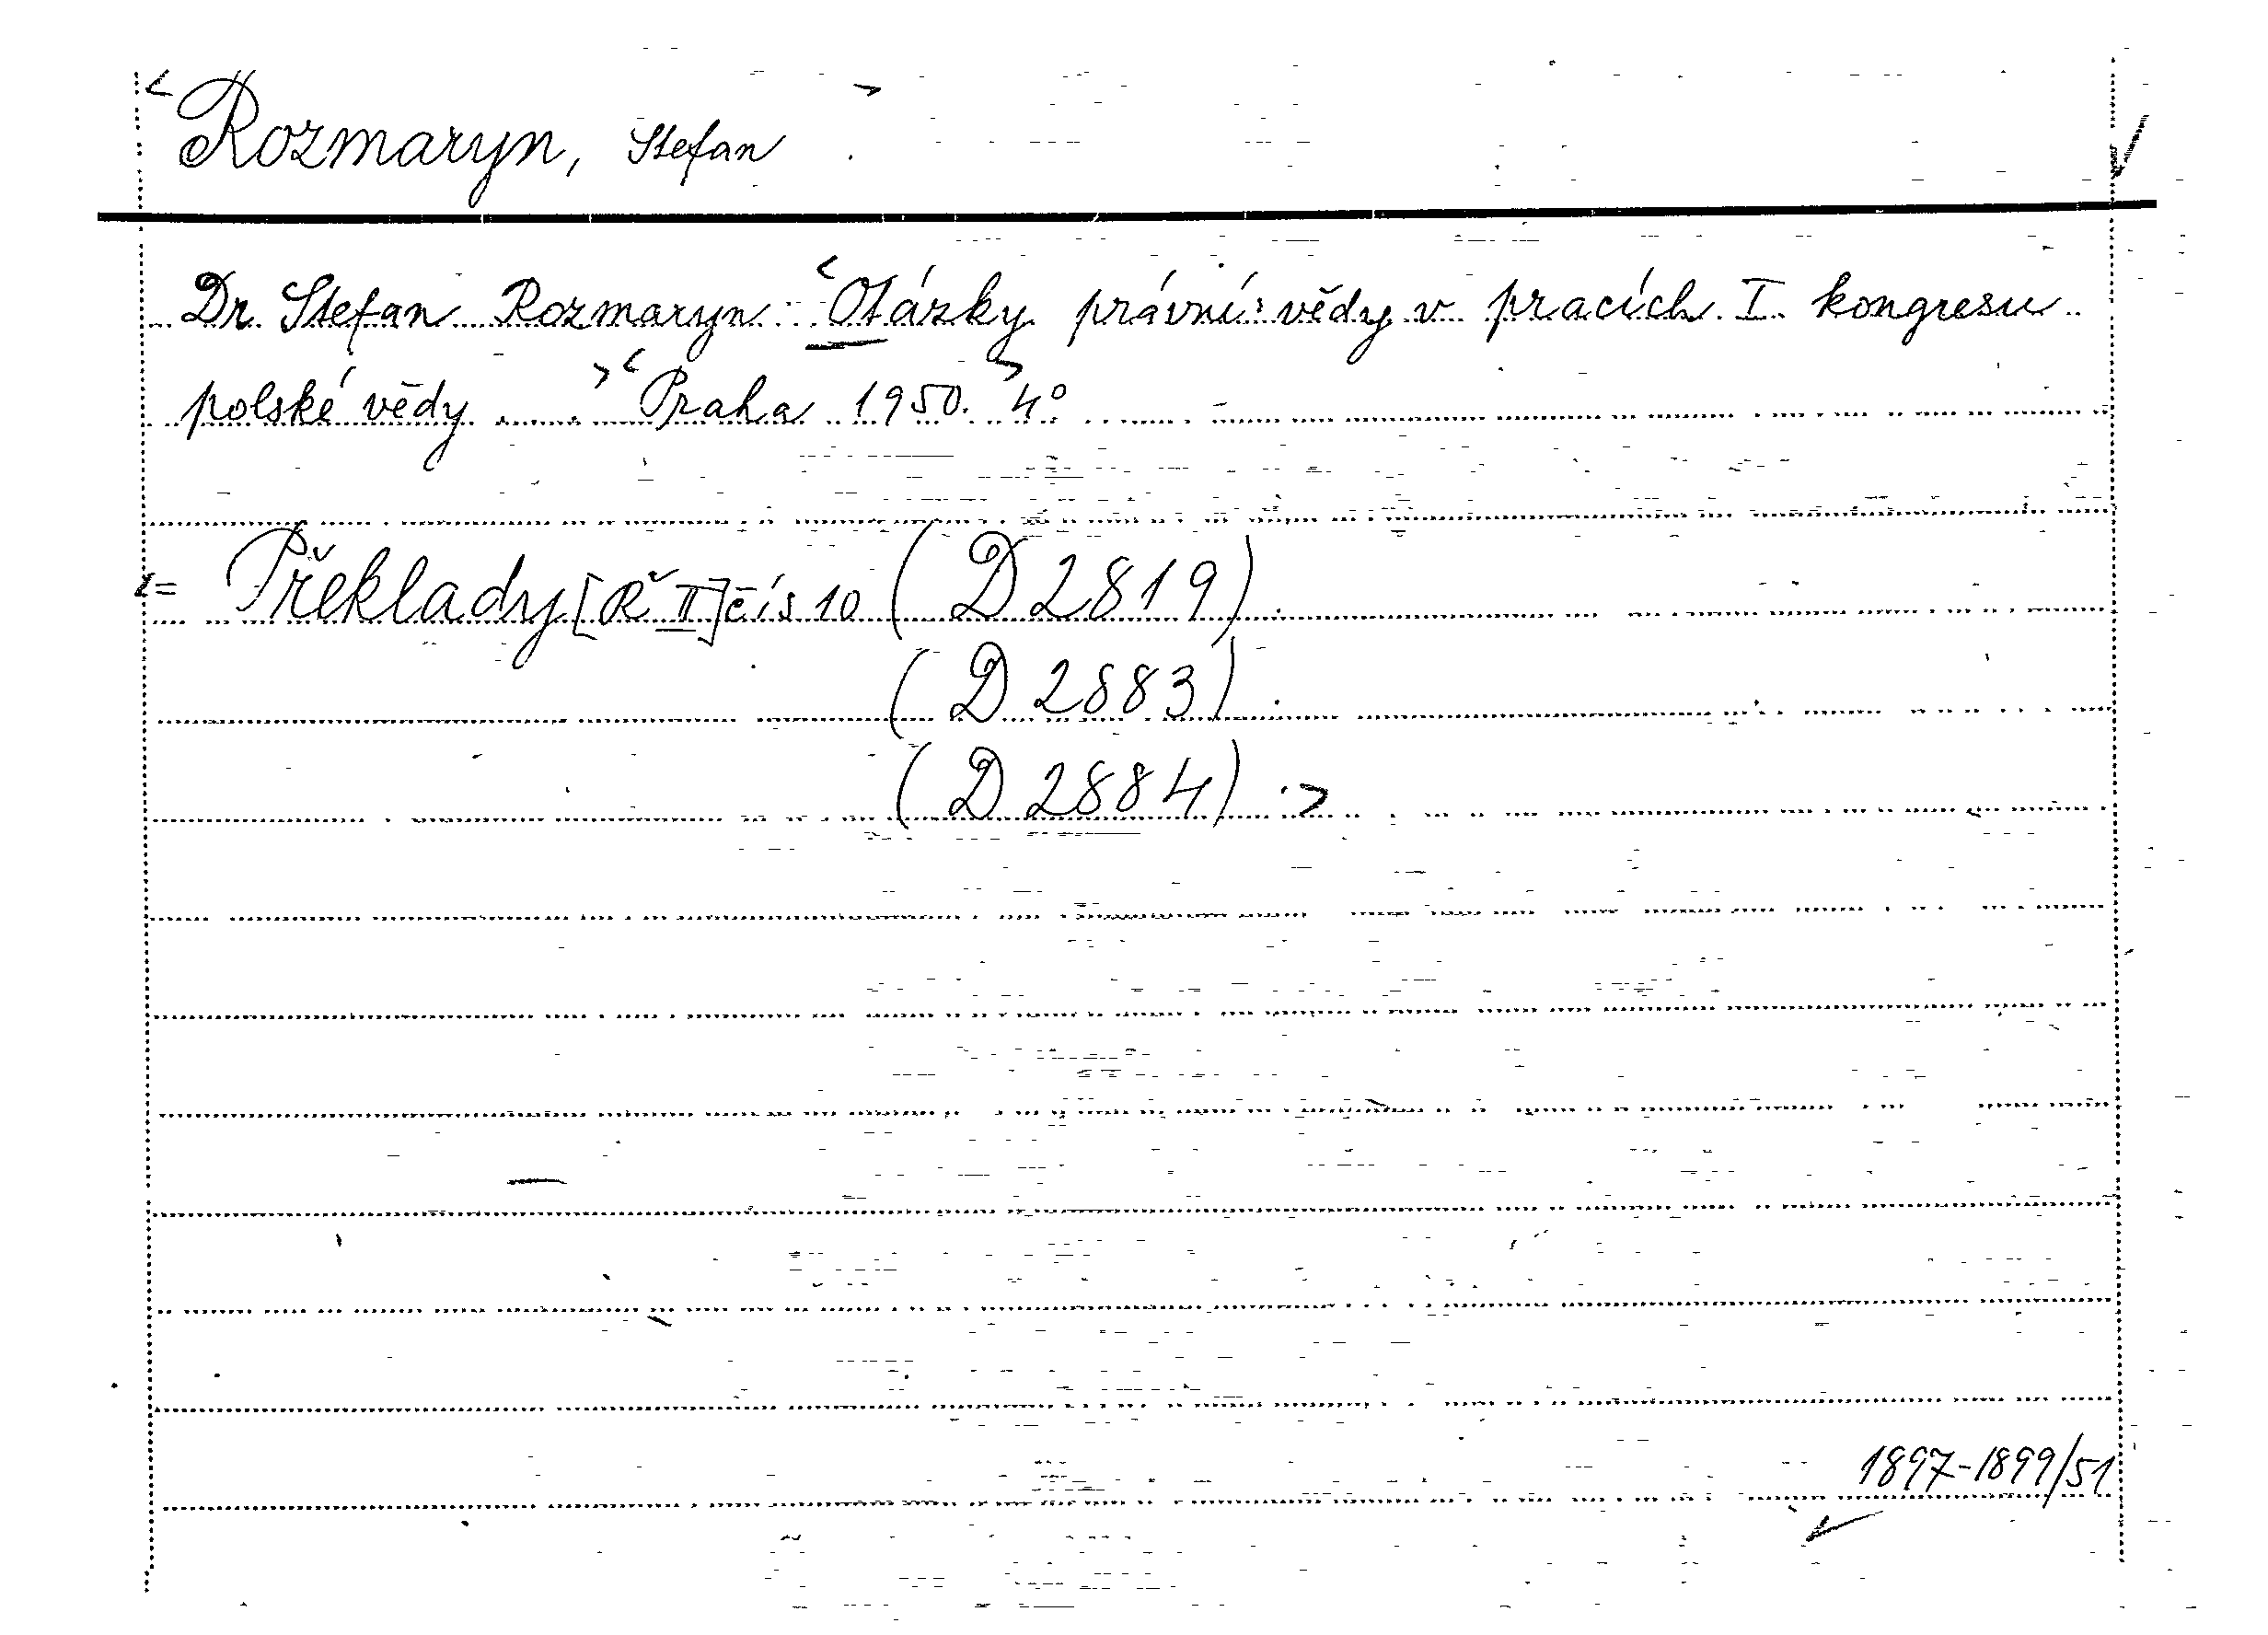 Rozmaryn, Stefan
Dr. Stefan Rozmaryn: Otázky právní vědy v pracích I. kongresu
polské vědy ..... Praha 1950. 4°
= Překlady [Ř II] čís 10 (D 2819)
(D 2883)
(D 2884)
1897-1899/51